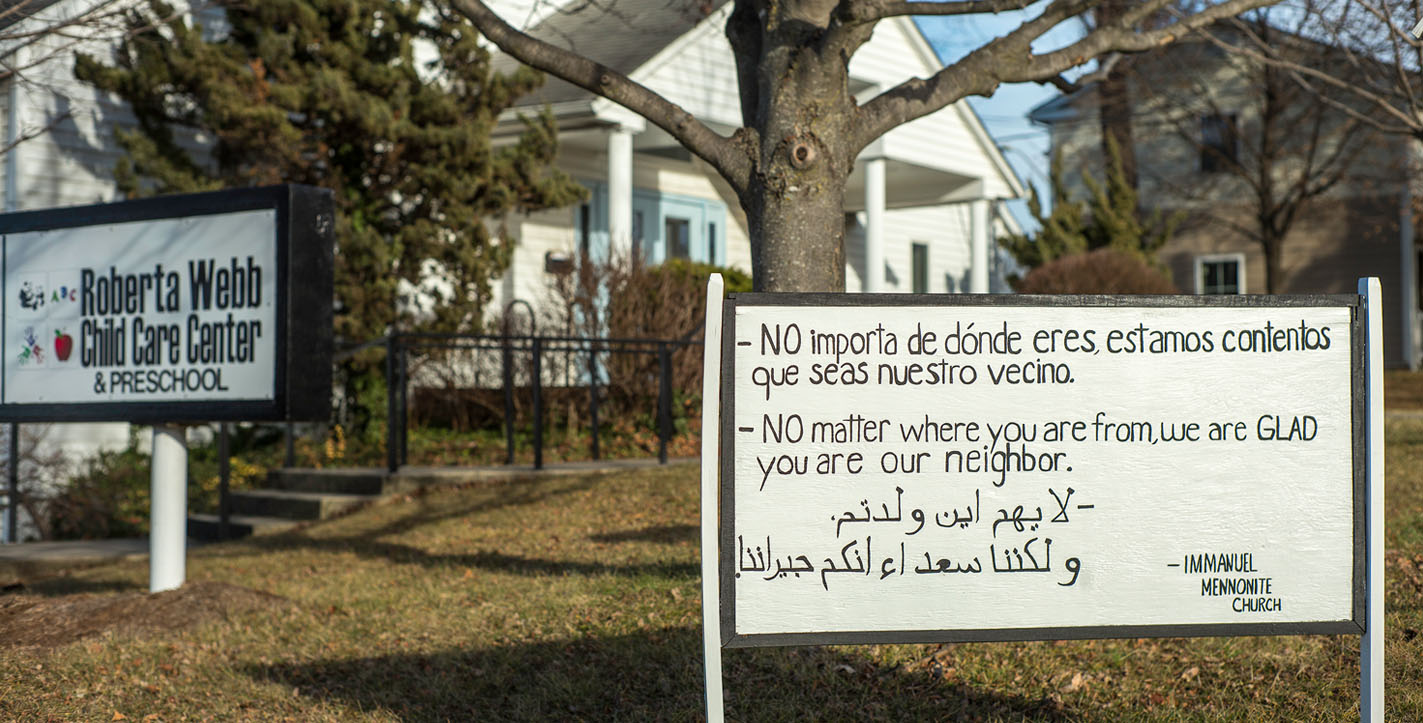 ABC
Roberta Webb
Child Care Center
& PRESCHOOL
- NO importa de dónde eres, estamos contentos
que seas nuestro vecino.
- NO matter where you are from, we are GLAD
you are our neighbor.
- لا يهم اين ولدتم.
و لكننا سعداء انكم جيراننا!
- IMMANUEL
MENNONITE
CHURCH